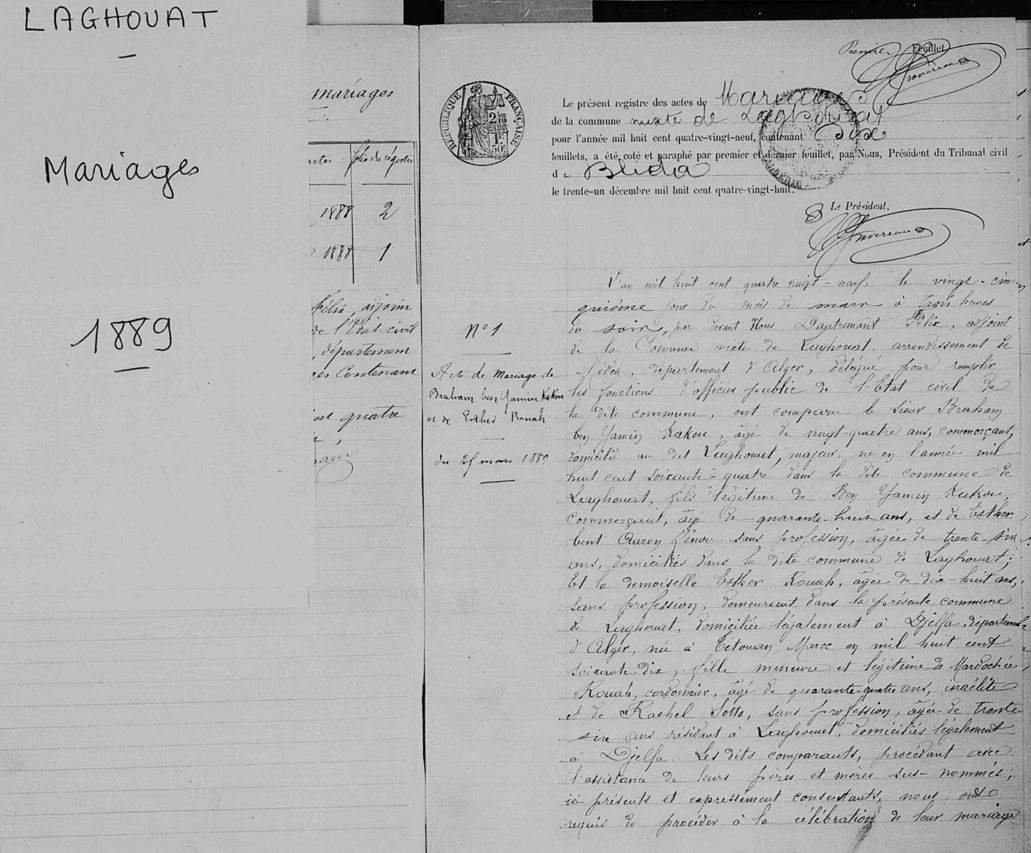 LAGHOUAT
Mariages
1889
mariages
folio du registre
1888 2
1888 1
Félix, adjoin
de l'Etat civil
départemen
Contenant
quatre
Premier Feuillet
RÉPUBLIQUE FRANÇAISE
Le présent registre des actes de Mariages
de la commune mixte de Laghouat
pour l'année mil huit cent quatre-vingt-neuf, contenant Dix
feuillets, a été coté et paraphé par premier et dernier feuillet, par Nous, Président du Tribunal civil
de Blida
le trente-un décembre mil huit cent quatre-vingt-huit.
Le Président,
N° 1
Acte de Mariage de
Braham ben Yamin Kakou
et de Esther Rouah
du 25 mars 1889
L'an mil huit cent quatre vingt-neuf, le vingt-cin-
quième jour du mois de mars à trois heures
du soir, par devant Nous Dautremant Félix, adjoint
de la Commune mixte de Laghouat, arrondissement de
Médéa, département d'Alger, délégué pour remplir
les fonctions d'officier public de l'Etat civil de
la dite commune, ont comparu le sieur Braham
ben Yamin Kakou, âgé de vingt-quatre ans, commerçant,
domicilié au dit Laghouat, majeur, né en l'année mil
huit cent soixante-quatre dans la dite commune de
Laghouat, fils légitime de Ben Yamin Kakou,
commerçant, âgé de quarante huit ans, et de Esther
bent Auron sans profession, âgée de trente-six
ans, domiciliés dans la dite commune de Laghouat;
Et la demoiselle Esther Rouah, âgée de dix-huit ans,
sans profession, demeurant dans la présente commune
de Laghouat, domiciliée légalement à Djelfa, département
d'Alger, née à Tétouan, Maroc en mil huit cent
soixante dix, fille mineure et légitime de Mardochée
Rouah, cordonnier, âgé de quarante-quatre ans, israélite
et de Rachel Sotto, sans profession, âgée de trente
six ans résidant à Laghouat, domiciliés légalement
à Djelfa. Les dits comparants, procédant avec
l'assistance de leurs pères et mères sus-nommés,
ici présents et expressément consentants, nous ont
requis de procéder à la célébration de leur mariage